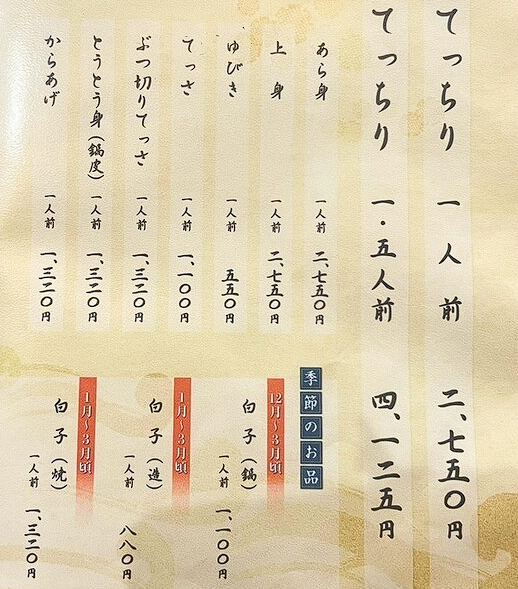 てっちり 一人前 二、七五〇円
てっちり 一・五人前 四、一二五円
あら身 一人前 二、七五〇円
上身 一人前 二、七五〇円
ゆびき 一人前 五五〇円
てっさ 一人前 一、一〇〇円
ぶつ切りてっさ 一人前 一、三二〇円
とうとう身(鍋皮) 一人前 一、三二〇円
からあげ 一人前 一、三二〇円
季節のお品
12月～3月頃
白子(鍋) 一人前 一、一〇〇円
1月～3月頃
白子(造) 一人前 八八〇円
1月～3月頃
白子(焼) 一人前 一、三二〇円